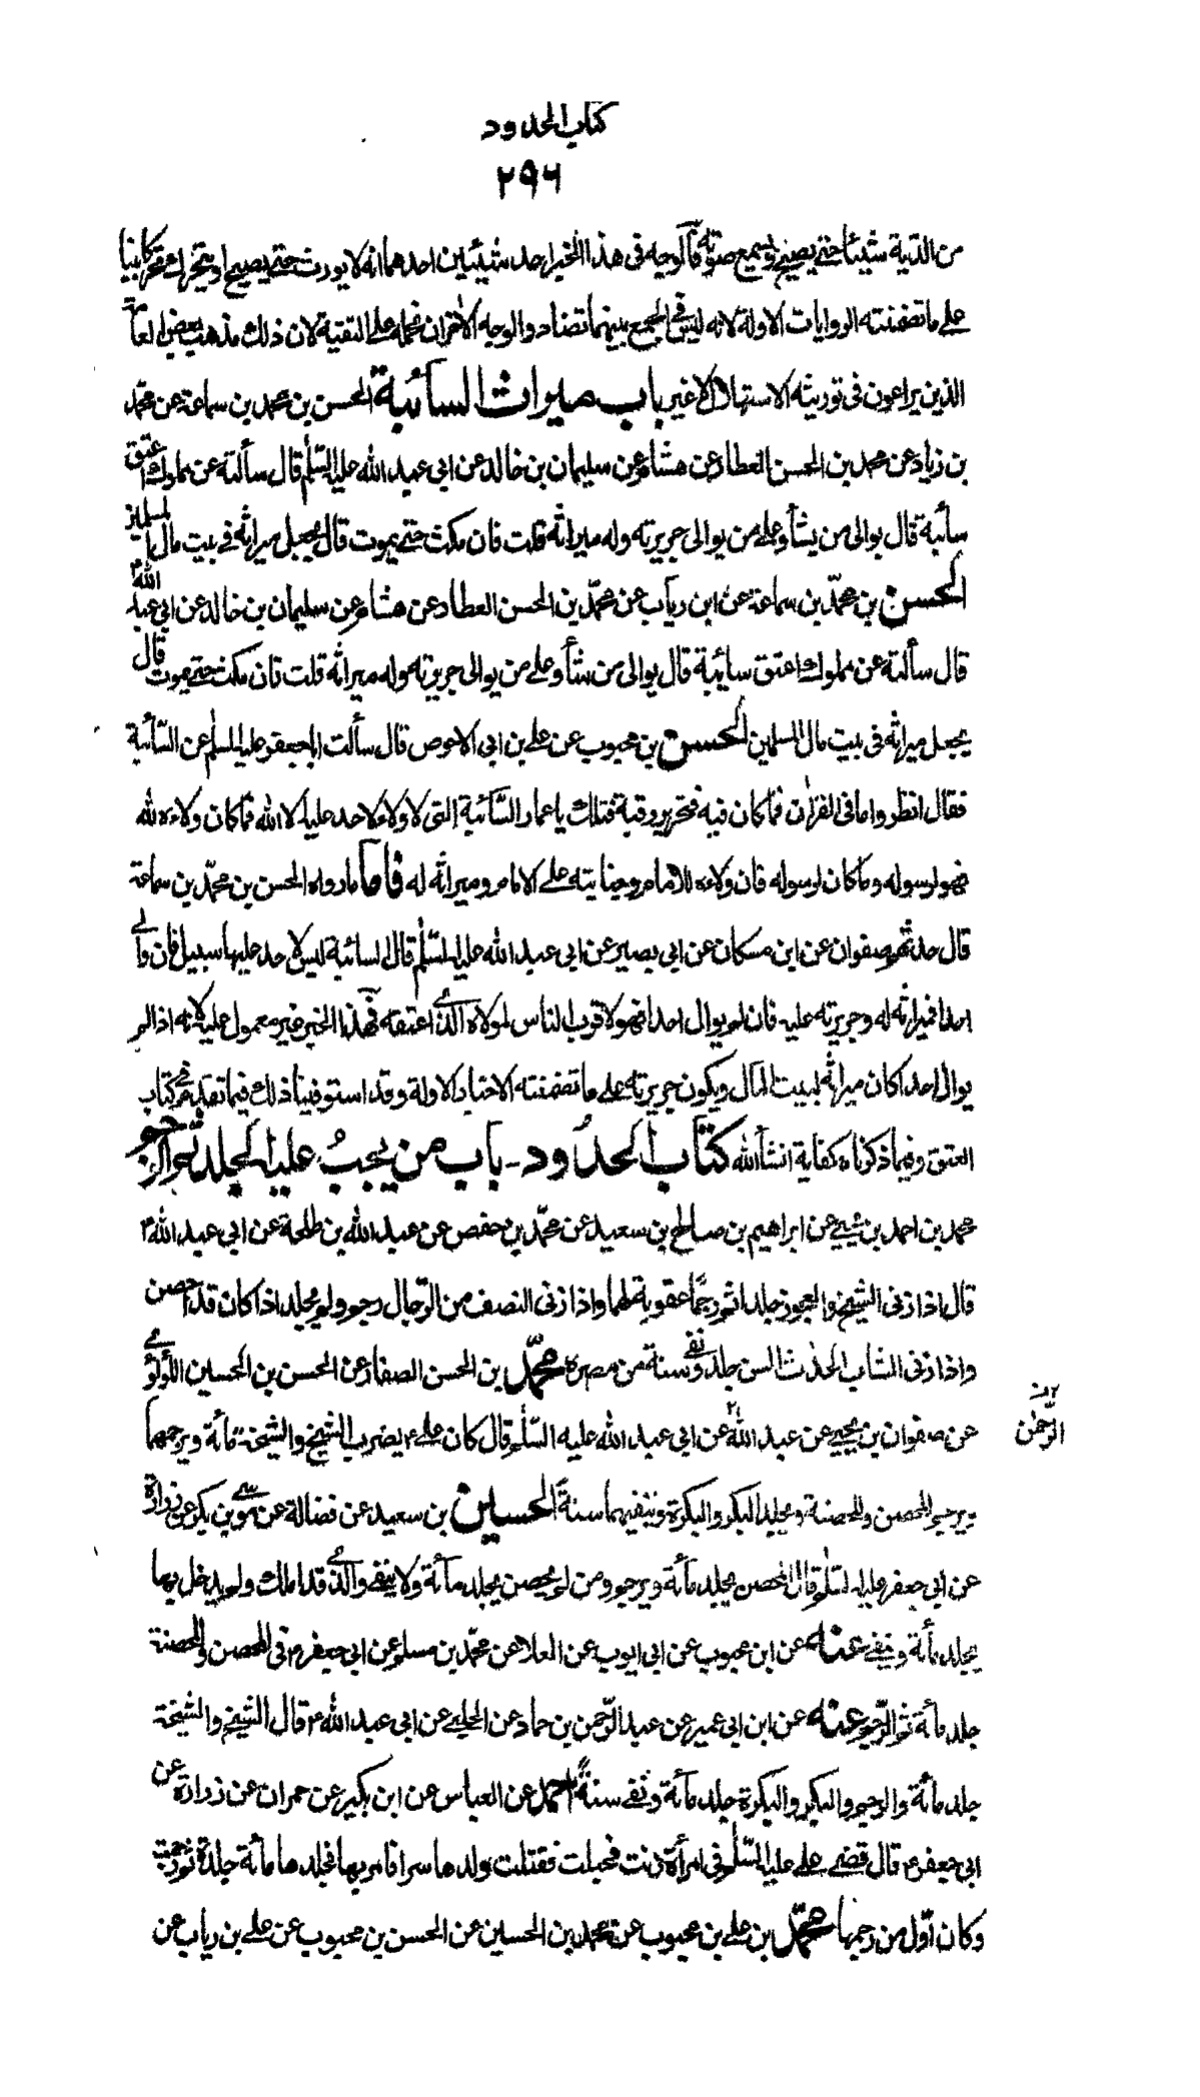 كتاب الحدود
٢٩٦
من الدية شيئا حتى يصيح ويسمع صوته فالوجه فى هذا الخبر احد شيئين احدهما انه لا يورث حتى يصيح او يتحرك تحركا بينا
على ما تضمنته الروايات الاولة لانه ليس فى الجمع بينهما تضاد والوجه الاخر ان نحمله على التقية لان ذلك مذهب بعض العامة
الذين يراعون فى توريثه الاستهلال لا غير باب ميراث السائبة الحسن بن محمد بن سماعة عن محمد
بن زياد عن محمد بن الحسن العطار عن هشام عن سليمان بن خالد عن ابى عبد الله عليه السلم قال سألته عن مملوك اعتق
سائبة قال يوالى من يشأ وعلى من يوالى جريرته وله ميراثه قلت فان مكث حتى يموت قال يجعل ميراثه فى بيت مال المسلمين
الحسن بن محمد بن سماعة عن ابن رياب عن محمد بن الحسن العطار عن هشام عن سليمان بن خالد عن ابى عبد الله ع
قال سألته عن مملوك اعتق سايبة قال يوالى من شأ وعلى من يوالى جريرته وله ميراثه قلت فان مكث حتى يموت قال
يجعل ميراثه فى بيت مال المسلمين الحسن بن محبوب عن على بن ابى الاحوص قال سألت ابا جعفر عليه السلم عن السائبة
فقال انظروا ما فى القران فما كان فيه فتحرير رقبة فتلك يا عمار السائبة التى لا ولاء لاحد عليه الا الله فما كان ولاءه لله
فهو لرسوله وما كان لرسوله فان ولاءه للامام وجنايته على الامام وميراثه له فاما ما رواه الحسن بن محمد بن سماعة
قال حدثهم صفوان عن ابن مسكان عن ابى بصير عن ابى عبد الله عليه السلم قال السائبة ليس لاحد عليها سبيل فان والى
احدا فميراثه له وجريرته عليه فان لم يوال احدا فهو لاقرب الناس لمولاه الذى اعتقه فهذا الخبر غير معمول عليه لانه اذا لم
يوال احدا كان ميراثه لبيت المال ويكون جريرته على ما تضمنته الاخبار الاولة وقد استوفينا ذلك فيما تقدم فى كتاب
العتق وفيما ذكرناه كفاية انشأ الله كتاب الحدود - باب من يجب عليه الجلد ثم الرجم
محمد بن احمد بن يحيى عن ابراهيم بن صالح بن سعيد عن محمد بن حفص عن عبد الله بن طلحة عن ابى عبد الله ع
قال اذا زنى الشيخ والعجوز جلدا ثم رجما عقوبة لهما واذا زنى النصف من الرجال رجم ولم يجلد اذا كان قد احصن
واذا زنى الشاب الحدث السن جلد ونفى سنة من مصره محمد بن الحسن الصفار عن الحسن بن الحسين اللؤلؤى
عن صفوان بن يحيى عن عبد الله عن ابى عبد الله عليه السلم قال كان على ع يضرب الشيخ والشيخة مائة ويرجمهما
الرحمن
ويرجم المحصن والمحصنة ويجلد البكر والبكرة وينفيهما سنة الحسين بن سعيد عن فضالة عن موسى بن بكر عن زرارة
عن ابى جعفر عليه السلم قال المحصن يجلد مائة ويرجم ومن لم يحصن يجلد مائة ولا ينفى والذى قد املك ولم يدخل بها
يجلد مائة وينفى عنه عن ابن محبوب عن ابى ايوب عن العلا عن محمد بن مسلم عن ابى جعفر ع فى المحصن والمحصنة
جلد مائة ثم الرجم عنه عن ابن ابى عمير عن عبد الرحمن بن حماد عن الحلبى عن ابى عبد الله ع قال الشيخ والشيخة
جلد مائة والرجم والبكر والبكرة جلد مائة ونفى سنة احمد عن العباس عن ابن بكير عن حمران عن زرارة عن
ابى جعفر ع قال قضى على عليه السلم فى امرأة زنت فحبلت فقتلت ولدها سرا فامر بها فجلدها مائة جلدة ثم رجمت
وكان اول من رجمها محمد بن على بن محبوب عن محمد بن الحسين عن الحسن بن محبوب عن على بن رياب عن